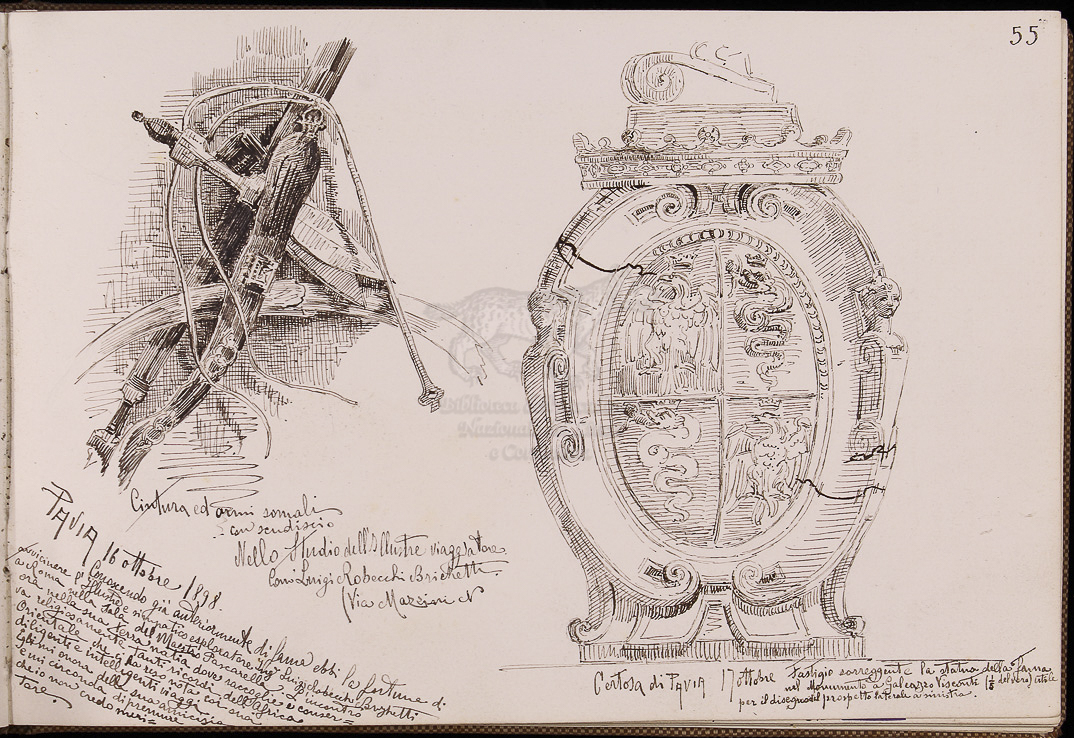 55
Cintura ed armi somali
e con scudiscio
Nello Studio dell'Illustre viaggiatore
Luigi Robecchi Brichetti
(Via Mazzini N
PAVIA 16 ottobre 1898.
Conoscendo già anteriormente di fama ebbi la fortuna di
avvicinare l'illustre e simpatico esploratore Ing Luigi Robecchi Brichetti
a Roma nella sala del Maestro Pancarella
ora nella sua terra natia dove raccoglie e conser=
va religiosamente tanti ricordi dell'Africa
Orientale che ha percorso con
diligente e intelligenti viaggi
Egli mi onora della sua amicizia
e mi circonda di premure
che io non credo meri=
tare.
Certosa di PAVIA 17 ottobre Fastigio sorreggente la statua della Fama
nel Monumento a Galeazzo Visconti (1/5 del vero)
per il disegno del prospetto laterale a sinistra.
Biblioteca
Nazionale